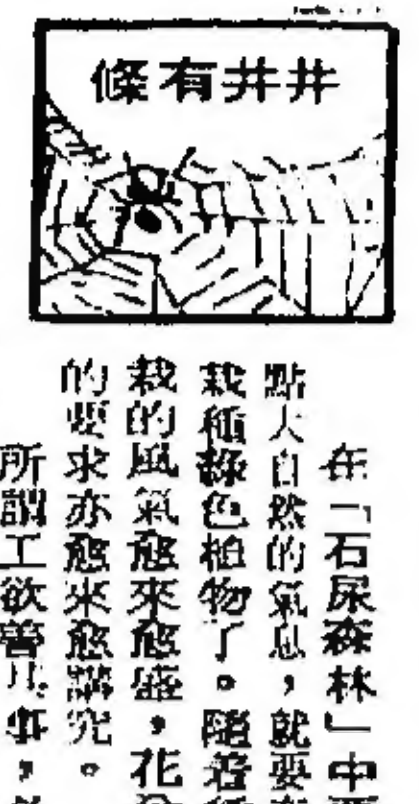 井井有條
在「石屎森林」中要
點大自然的氣息，就要
栽種綠色植物了。隨着種
栽的風氣愈來愈盛，花
的要求亦愈來愈講究。
所謂工欲善其事，